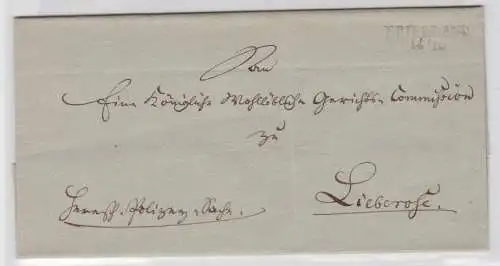 FRIEDLAND
An
Eine Königliche Wohllöbliche Gerichts-Commission
zu
Lieberose.
Herrsch. Polizey-Sache.